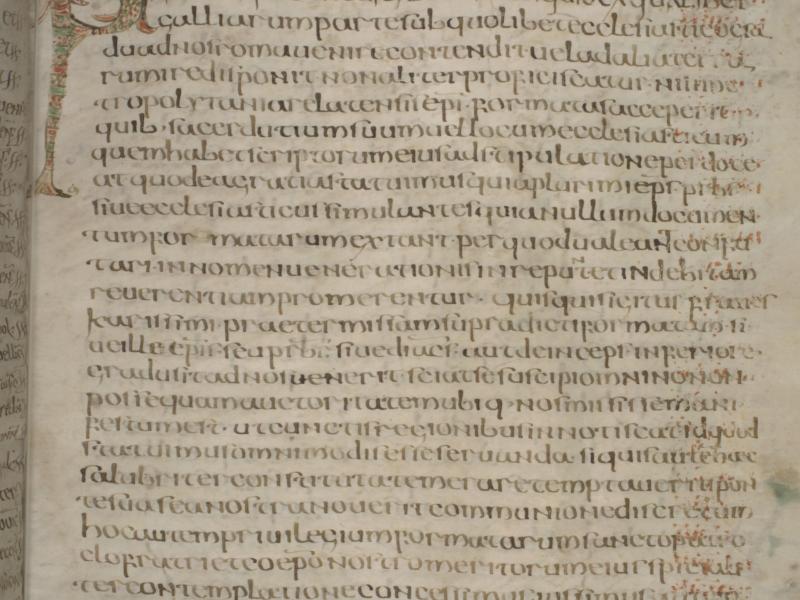 galliarum parte sub quolibet ecclesiastico gra
du ad nos romae venire contendit vel ad alia terra
rum ire disponit non aliter proficiscatur nisi me
tropolytani arelatensis epi formatas acceperit
quib sacerdotium suum vel locum ecclesiasticum
quem habet scriptorum eius adstipulatione perdoce
at quod ea gratia statuimus quia plurimi epi prbi
sive ecclesiastici simulantes quia nullum documen
tum formatarum extant per quod valeant confu
tari in nomen venerationis inrepunt et indebitam
reverentiam promerentur quisquis igitur fratres
karissimi praetermissa supradicti formatam si
ve ille eps sea prbi sive diac aut deinceps inferiore
gradu sit ad nos venerit sciat se suscipi omnino non
posse quam auctoritatem ubiq nos misisse mani
festum est ut cunctis regionibus innotiscat id quod
statuimus omnimodis esse servandam siquis autem haec
salubriter constatuta temerare temptaverit spon
te sua se a nostra noverit communione discretum
hoc autem privilegium formatarum sancto patro
clo fratri et coepo nostro meritorum eius speciali
ter contemplatione concessimus